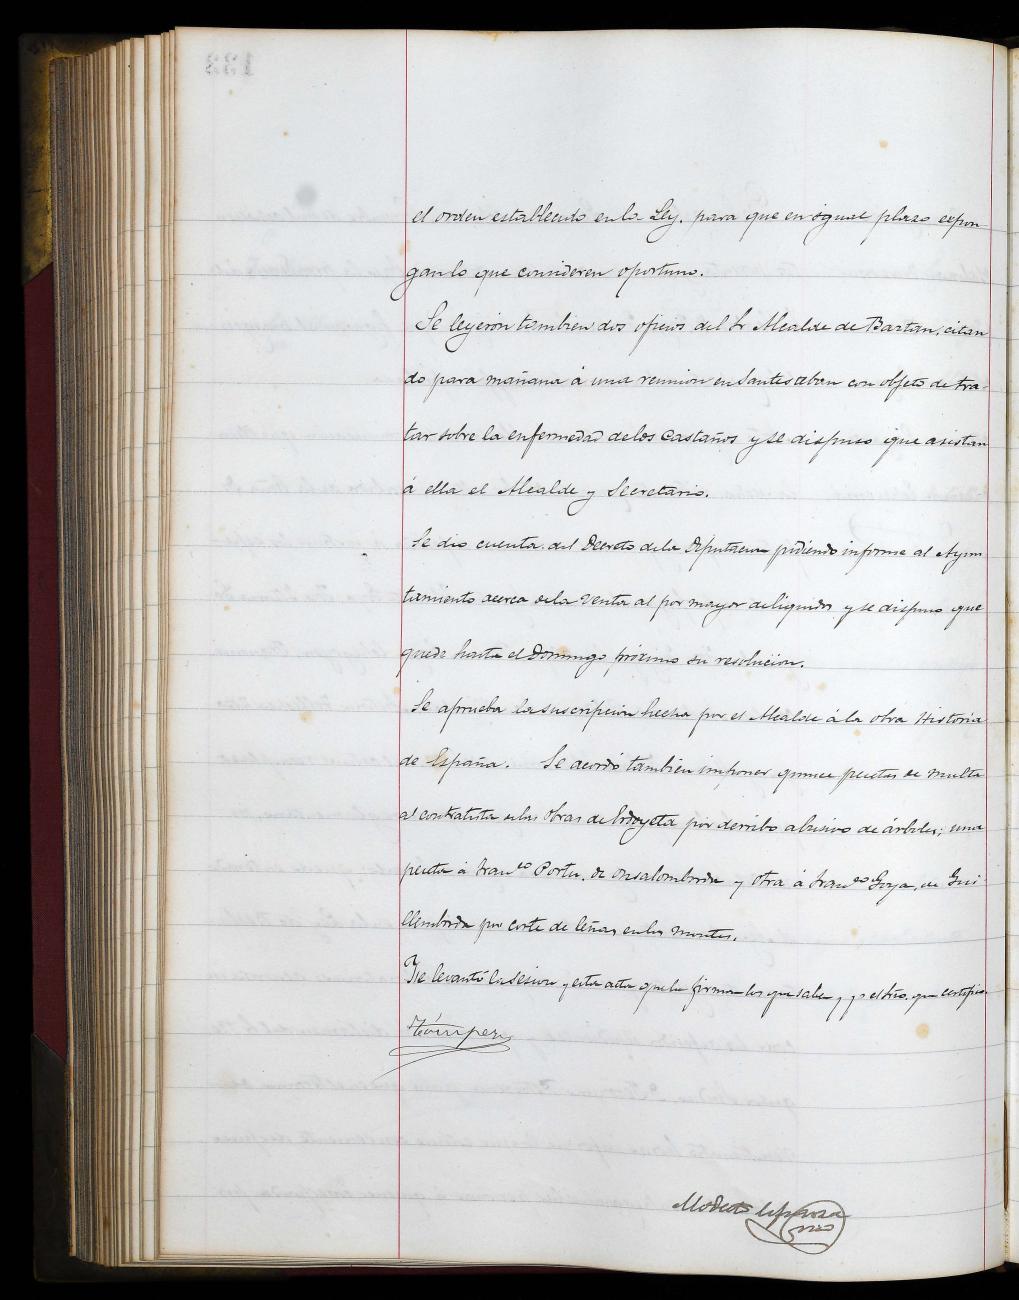 el orden establecido en la Ley, para que en igual plazo expon-
gan lo que consideren oportuno.
Se leyeron tambien dos oficios del Sr Alcalde de Baztan, citan
do para mañana á una reunion en Santesteban con objeto de tra-
tar sobre la enfermedad de los Castaños y se dispuso que asistan
á ella el Alcalde y Secretario.
Se dio cuenta del Decreto de la Diputacion pidiendo informe al Ayun
tamiento acerca de la venta al por mayor de líquidos y se dispuso que
quede hasta el Domingo próximo su resolucion.
Se aprueba la suscripcion hecha por el Alcalde á la obra Historia
de España. Se acordó tambien imponer quince pesetas de multa
al contratista de las obras de por derribo abusivo de árboles; una
peseta á Franco Portu, de y otra á Franco Goya, de Gui
llemborda por corte de leñas en los montes.
Y se levantó la sesion y esta acta que la firman los que saben y yo el Srio, que certifico.
Modesto